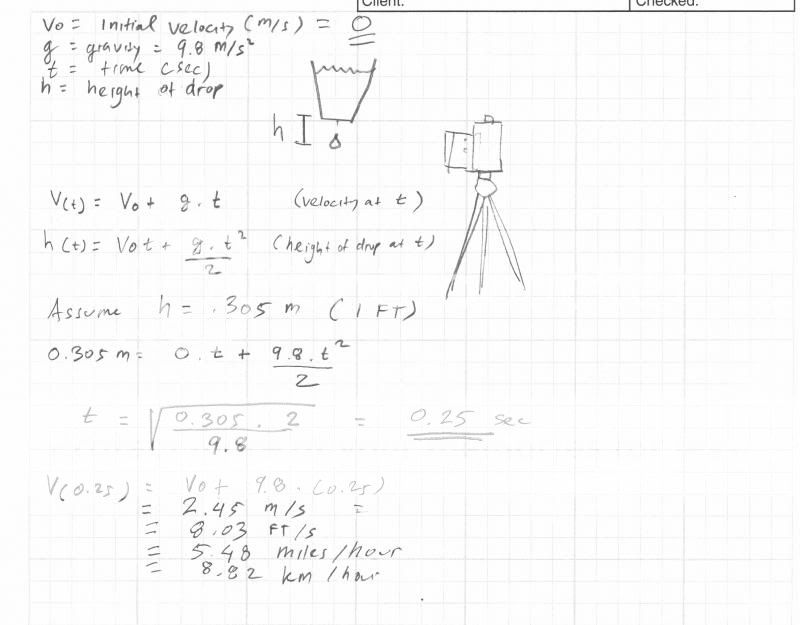 Client:
Checked:
Vo = Initial velocity (m/s) = 0
g = gravity = 9.8 m/s²
t = time (sec)
h = height of drop
h
V(t) = Vo + g . t (velocity at t)
h(t) = Vot + g . t² / 2 (height of drop at t)
Assume h = .305 m (1 FT)
0.305 m = 0 . t + 9.8 . t² / 2
t = √ 0.305 . 2 / 9.8 = 0.25 sec
V(0.25) = Vo + 9.8 . (0.25)
= 2.45 m/s =
= 8.03 FT/s
= 5.48 miles/hour
= 8.82 km/hour